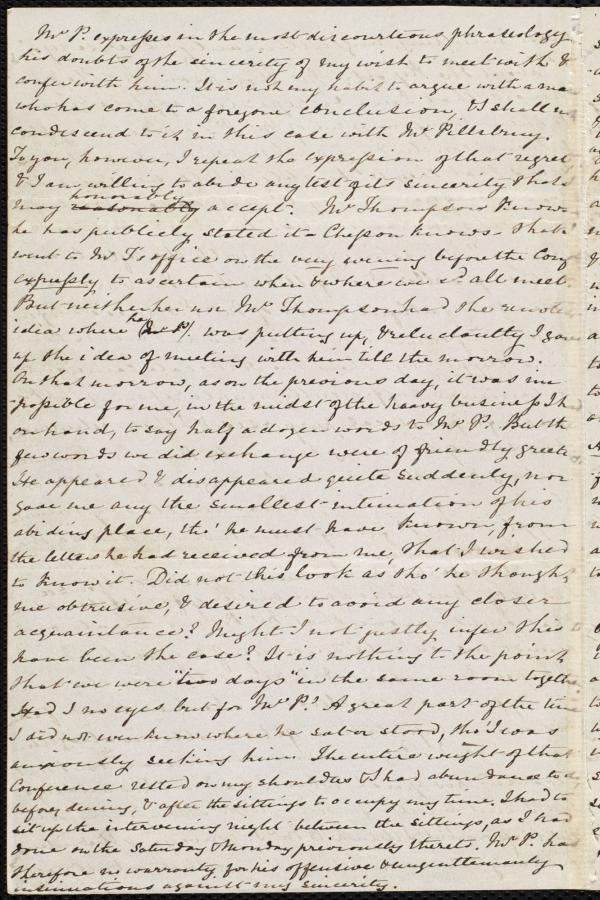 Mr P. expresses in the most discourteous phraseology
his doubts of the sincerity of my wish to meet with &
confer with him. It is not my habit to argue with a ma
who has come to a foregone conclusion, & I shall n
condescend to it in this case with Mr Pillsbury.
To you, however, I repeat the expression of that regret
& I am willing to abide any test of its sincerity that
honorably
may reasonably accept. Mr Thompson knows
he has publicly stated it - Chesson knows - that
went to Mr T's office on the very evening before the Conf
expressly to ascertain when & where we cd all meet.
But neither he nor Mr Thompson had the remote
idea where he (Mr P) was putting up, & reluctantly I gave
up the idea of meeting with him till the morrow.
On that morrow, as on the previous day, it was im
possible for me, in the midst of the heavy business I h
on hand, to say half a dozen words to Mr P. But th
few words we did exchange were of friendly greeti
He appeared & disappeared quite suddenly, nor
gave me any the smallest intimation of his
abiding place, tho' he must have known, from
the letters he had received from me, that I wished
to know it. Did not this look as tho' he thought
me obtrusive, & desired to avoid any closer
acquaintance? Might I not justly infer this t
have been the case? It is nothing to the point
that we were "two days" in the same room togethe
Had I no eyes but for Mr P? A great part of the tim
I did not even know where he sat or stood, tho' I was
anxiously seeking him. The entire weight of that
Conference rested on my shoulders & I had abundance to d
before, during, & after the sittings to occupy my time. I had to
sit up the intervening night between the sittings, as I had
done on the Saturday & Monday previously thereto. Mr P. has
therefore no warranty for his offensive & ungentlemanly
insinuations against my sincerity.